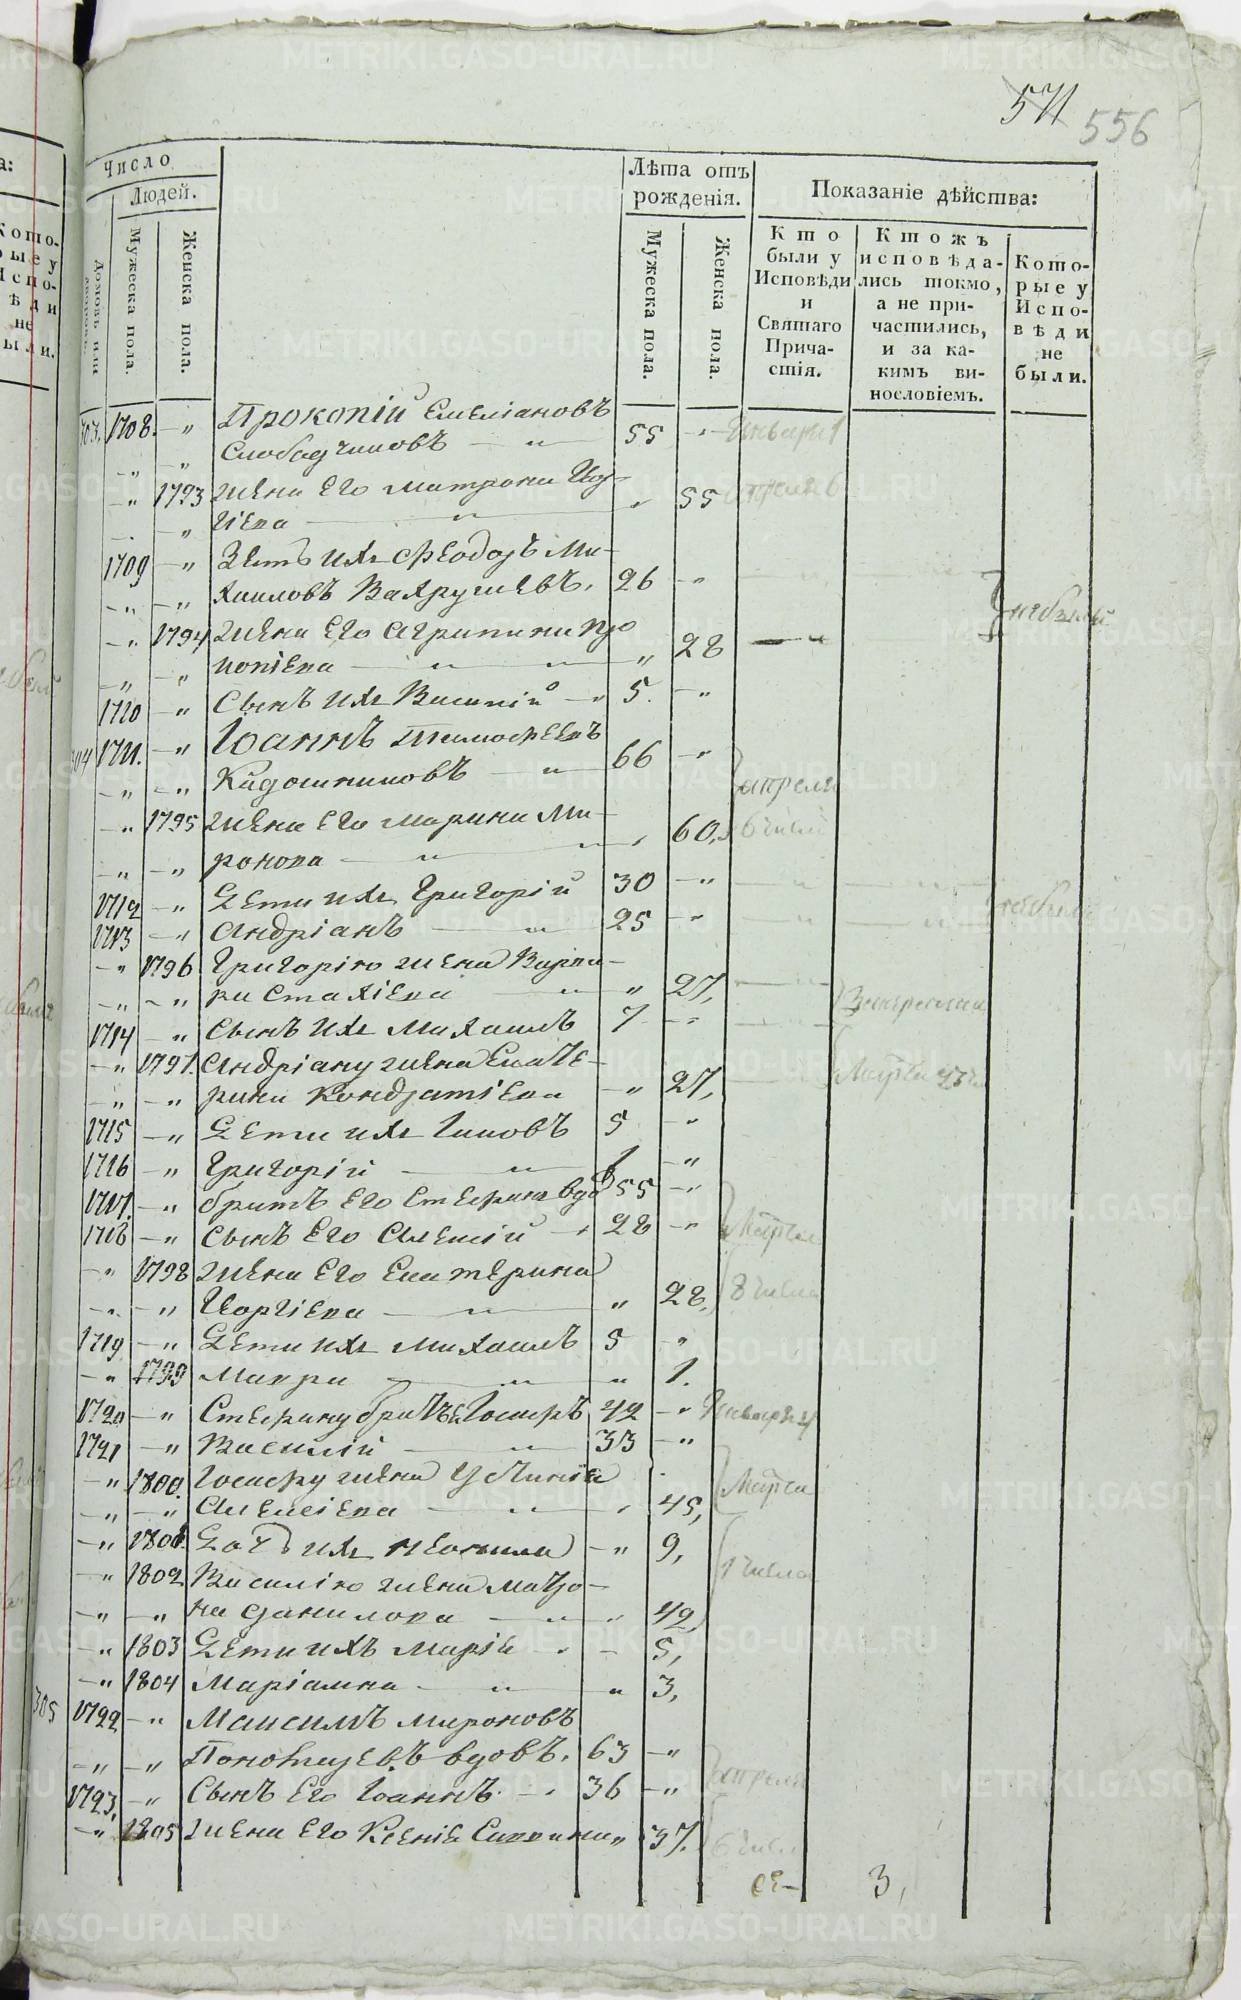 571 556
Число
Людей.
Домовъ или дворовъ.
Мужеска пола.
Женска пола.
Лѣта отъ рожденія.
Мужеска пола.
Женска пола.
Показаніе дѣйства:
Кто были у Исповѣди и Святаго Причастія.
Ктожъ исповѣдались токмо, а не причастились, и за какимъ винословіемъ.
Которые у Исповѣди не были.
303. 1708. Прокопій Емеліановъ
Слободчиковъ 55 Января
1793 жена его Матрона
55 апреля 6
1709 Зять ихъ Феодоръ Ми-
хаиловъ Вахрушевъ. 26
1794 жена его Агрипина Про
копіева 28 небыли
1710 Сынъ ихъ Василій 5.
304 1711. Іоаннъ Тимофеевъ
66 апреля
1795 жена его Марина Ми-
ронова 60, 6 числа
1712 Дети ихъ Григорій 30
1713 Андріанъ 25 небыли
1796 Григорію жена Варва-
ра Стахіева 27,
1714 Сынъ ихъ Михаилъ 7
1797. Андріану жена Екате-
рина Кондратіева 27, Марта
1715 Дети ихъ 5
1716 Григорій 1
1717. братъ его Стефанъ вдов 55
1718 Сынъ его Алексій 28 Марта
1798 жена его Екатерина
Георгіева 28, 8 числа
1719 Дети ихъ Михаилъ 5
1799 Мавра 1.
1720 Стефану братъ Іосифъ 42 Января
1721 Василій 33
1800. Іосифу жена Устинія
Алексіева 45, Марта
1801. Дочь ихъ Неонила 9,
1802 Василію жена Матро-
на Данилова 42, 1 числа
1803 Дети ихъ Марія 5,
1804 Маріамна 3,
305 1722 Максимъ Мироновъ
вдовъ. 63 апреля
1723. Сынъ его Іоаннъ 36
1805 жена его Ксенія Саввина 37. 6 числа
3,
METRIKI.GASO-URAL.RU